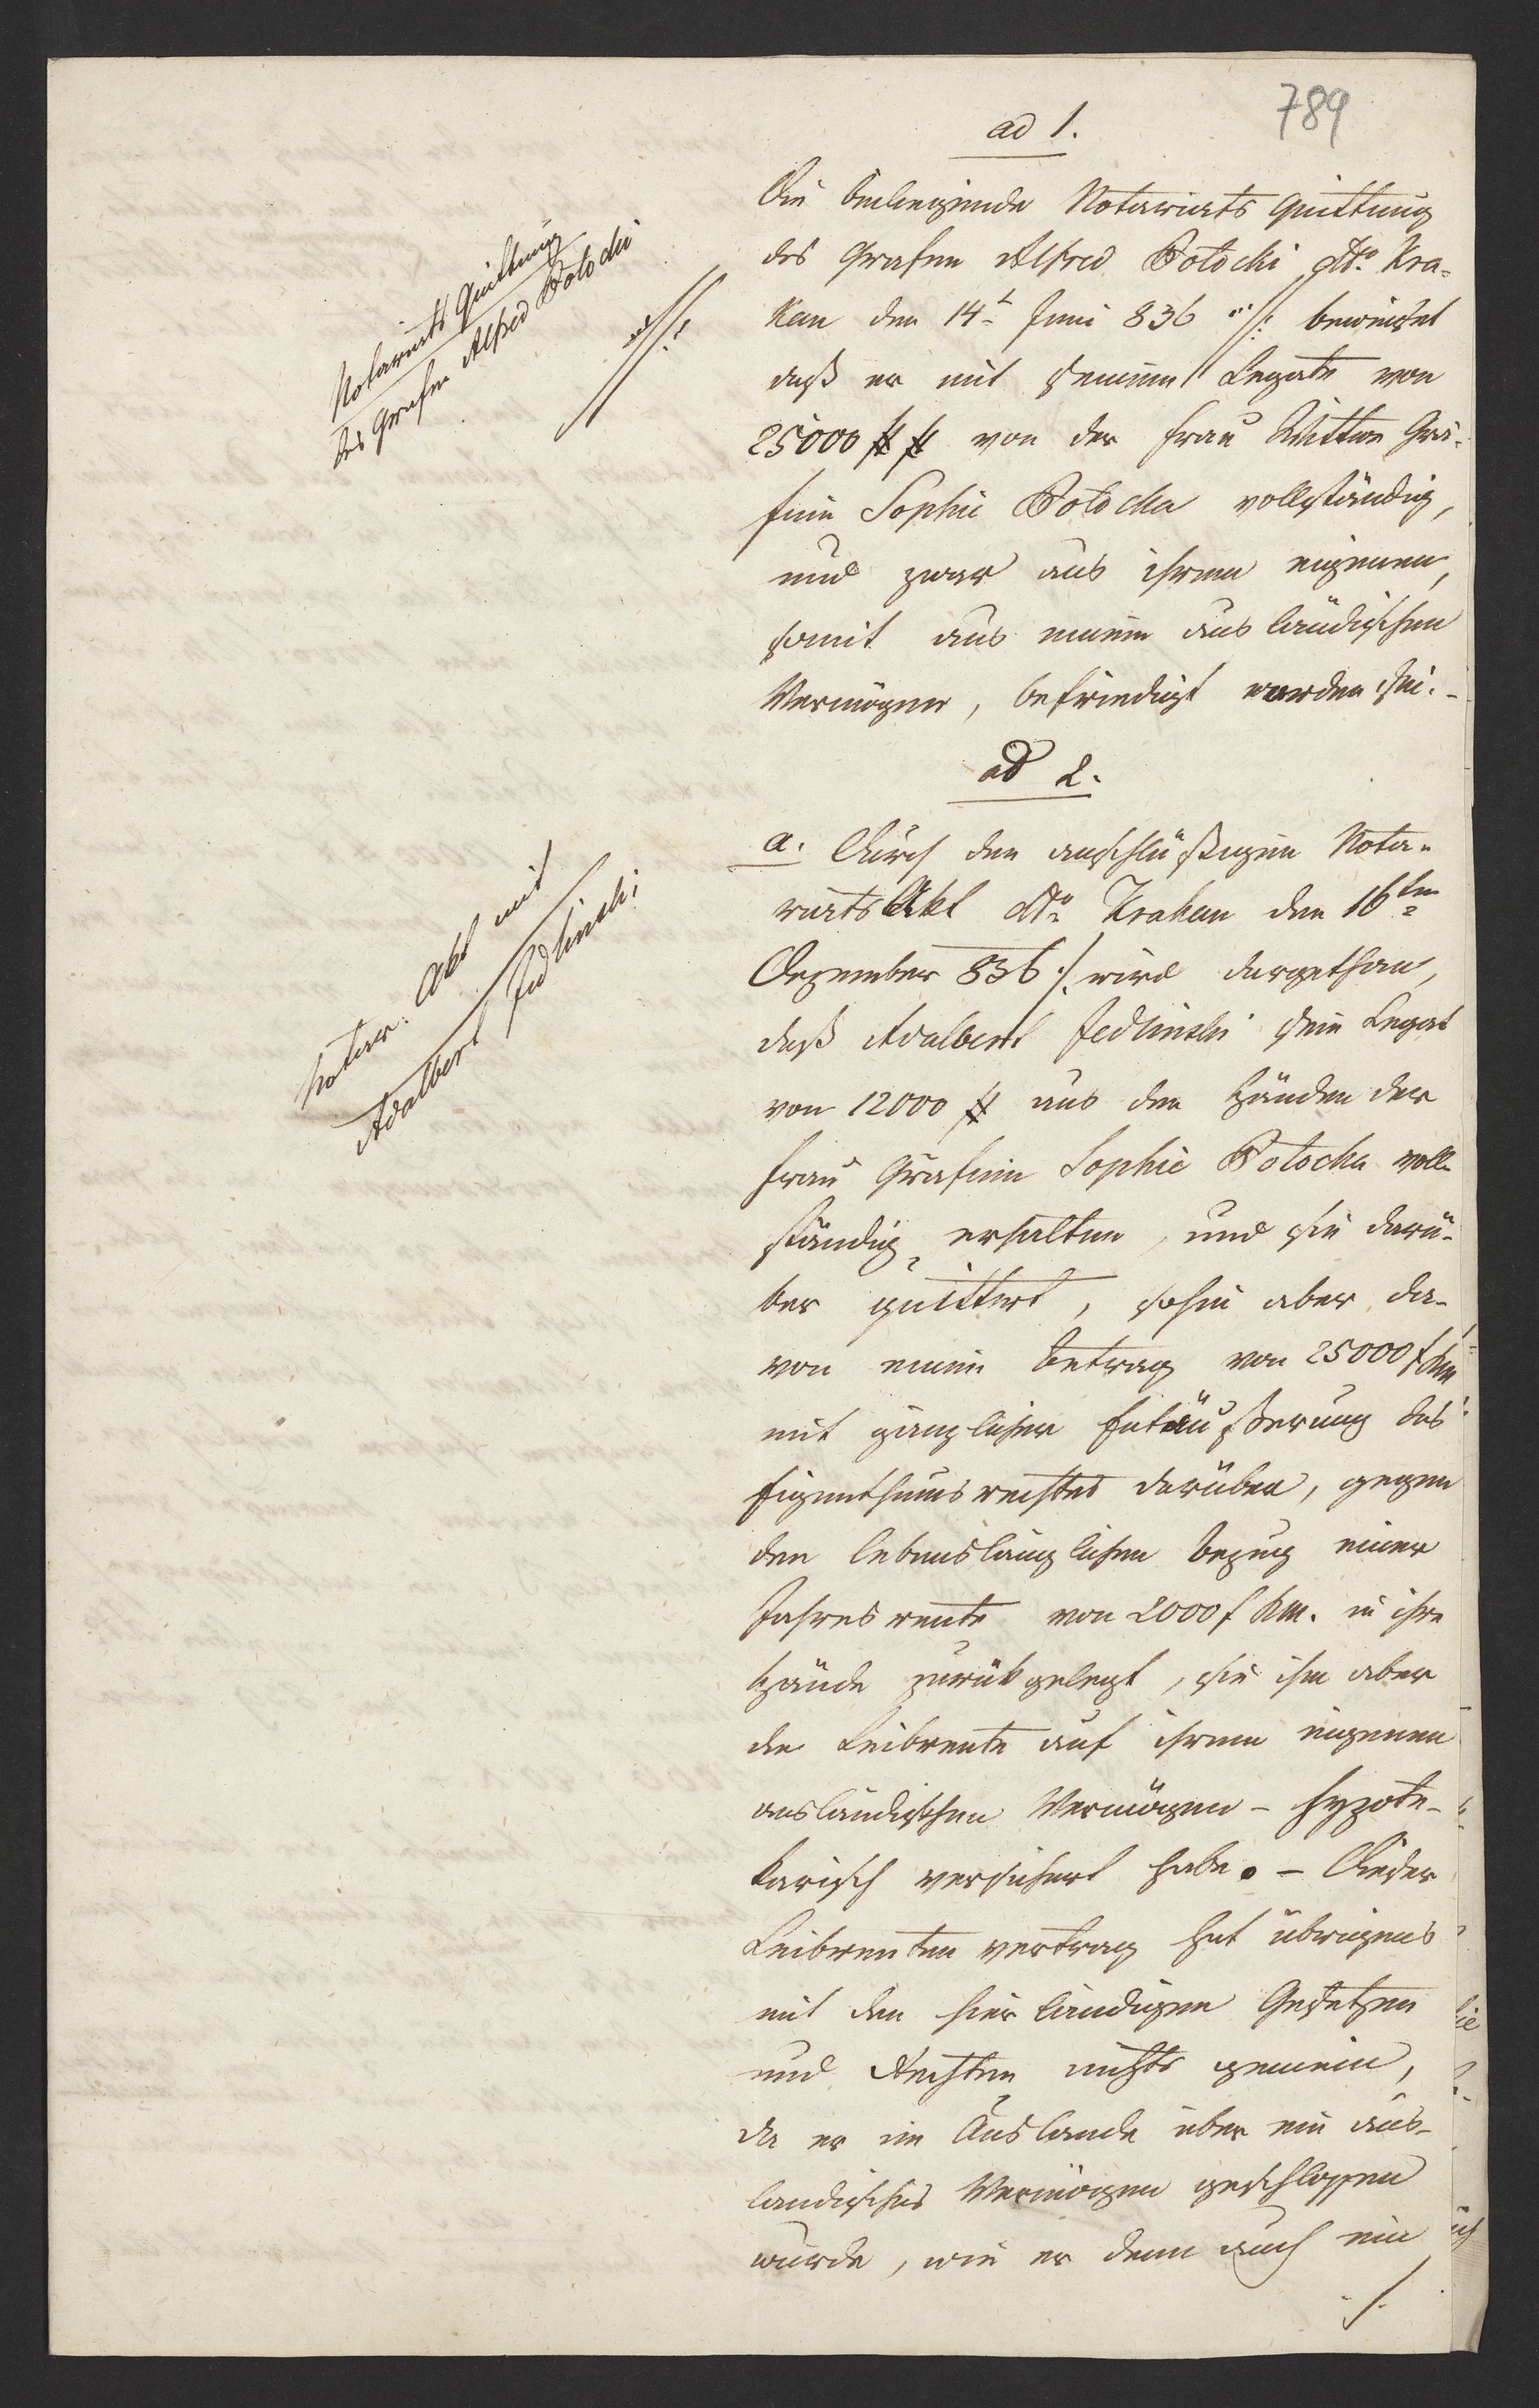 789
ad 1.
Die beiliegende Notariats Quittung
des Grafen Alfred Potocki ddto Kra-
kau den 14t Juni 836 ·/: beweiset
daß er mit seinem Legate von
25000 # # von der Frau Wittwe Grä-
finn Sophie Potocka vollständig,
und zwar aus ihrem eigenen,
somit aus einem ausländischen
Vermögen, befriedigt worden sei. -
Notariats Quittung
des Grafen Alfred Potocki
·/:
ad 2.
a. Durch den anschlüßigen Nota-
riats Akt ddto Krakau den 16ten
Dezember 836 ·/. wird dargethan,
daß Adalbert Jedlinski sein Legat
von 12000 # aus den Händen der
Frau Gräfinn Sophie Potocka voll-
ständig erhalten, und sie darü-
ber quittirt, sohin aber da-
von einen Betrag von 25000 f Km
mit gänzlicher Entäußerung des
Eigenthumsrechtes darüber, gegen
den lebenslänglichen Bezug einer
Jahresrente von 2000 f Km. in ihre
Hände zurükgelegt, sie ihm aber
die Leibrente auf ihrem eigenen
ausländischen Vermögen - hypote-
karisch versichert habe. - Dieser
Leibrenten vertrag hat übrigens
mit den hierländigen Gesetzen
und Rechten nichts gemein,
da er im Auslande über ein aus-
ländisches Vermögen geschlossen
wurde, wie er denn auch ein
·/.
Notar: Akt mit
Adalbert Jedlinski